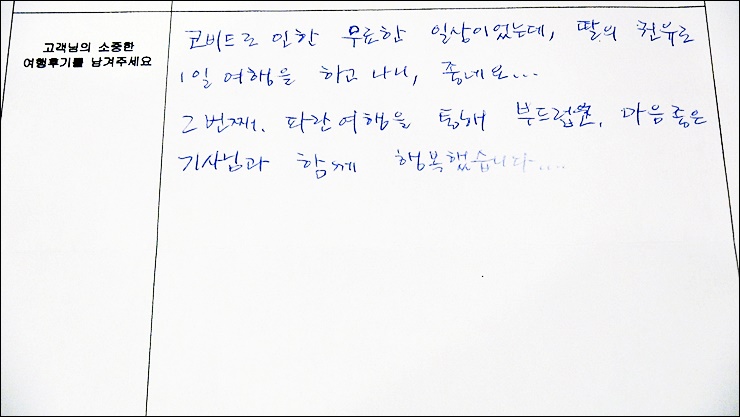 고객님의 소중한
여행후기를 남겨주세요
코비드로 인한 무료한 일상이었는데, 딸의 권유로
1일 여행을 하고 나니, 좋네요...
2번째. 파란여행을 통해 부드럽고, 마음 좋은
기사님과 함께 행복했습니다....